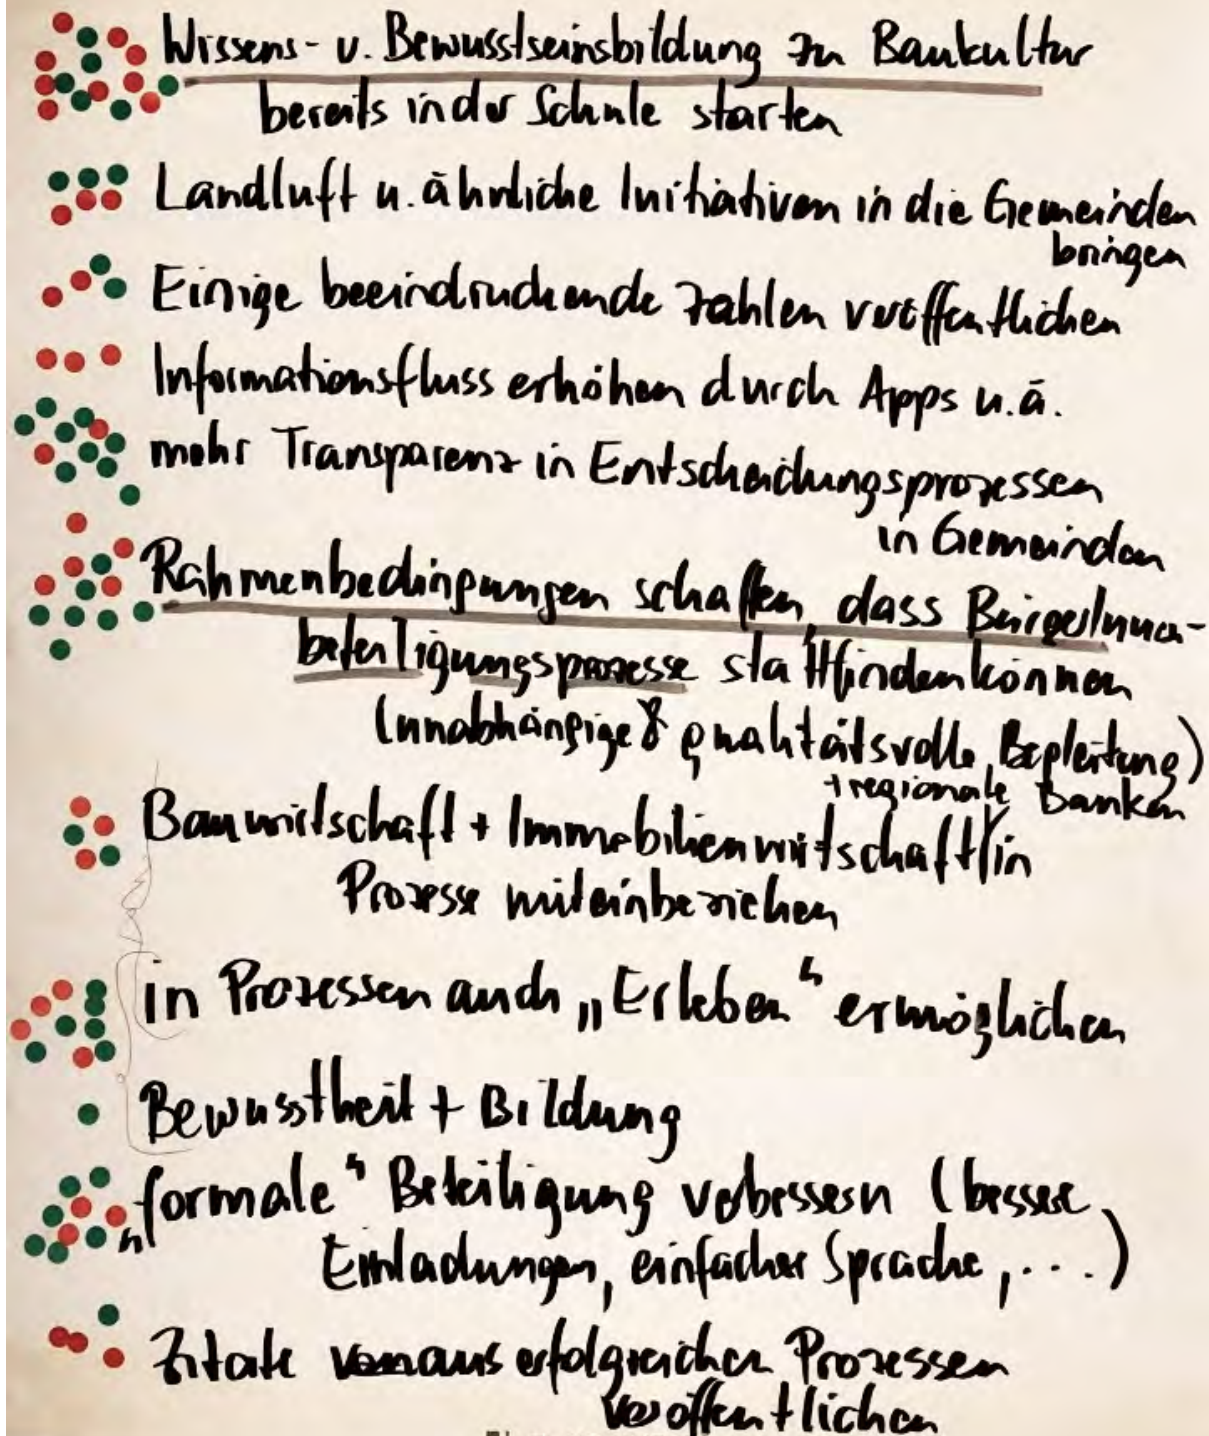 Wissens- u. Bewusstseinsbildung zu Baukultur
bereits in der Schule starten
Landluft u. ähnliche Initiativen in die Gemeinden
bringen
Einige beeindruckende Zahlen veröffentlichen
Informationsfluss erhöhen durch Apps u.ä.
mehr Transparenz in Entscheidungsprozessen
in Gemeinden
Rahmenbedingungen schaffen, dass BürgerInnen-
beteiligungsprozesse stattfinden können
(unabhängige & qualitätsvolle Begleitung)
+ regionale Banken
Bauwirtschaft + Immobilienwirtschaft in
Prozesse miteinbeziehen
in Prozessen auch „Erleben“ ermöglichen
Bewusstheit + Bildung
„formale“ Beteiligung verbessern (bessere
Einladungen, einfacher Sprache, ...)
Zitate aus erfolgreichen Prozessen
veröffentlichen